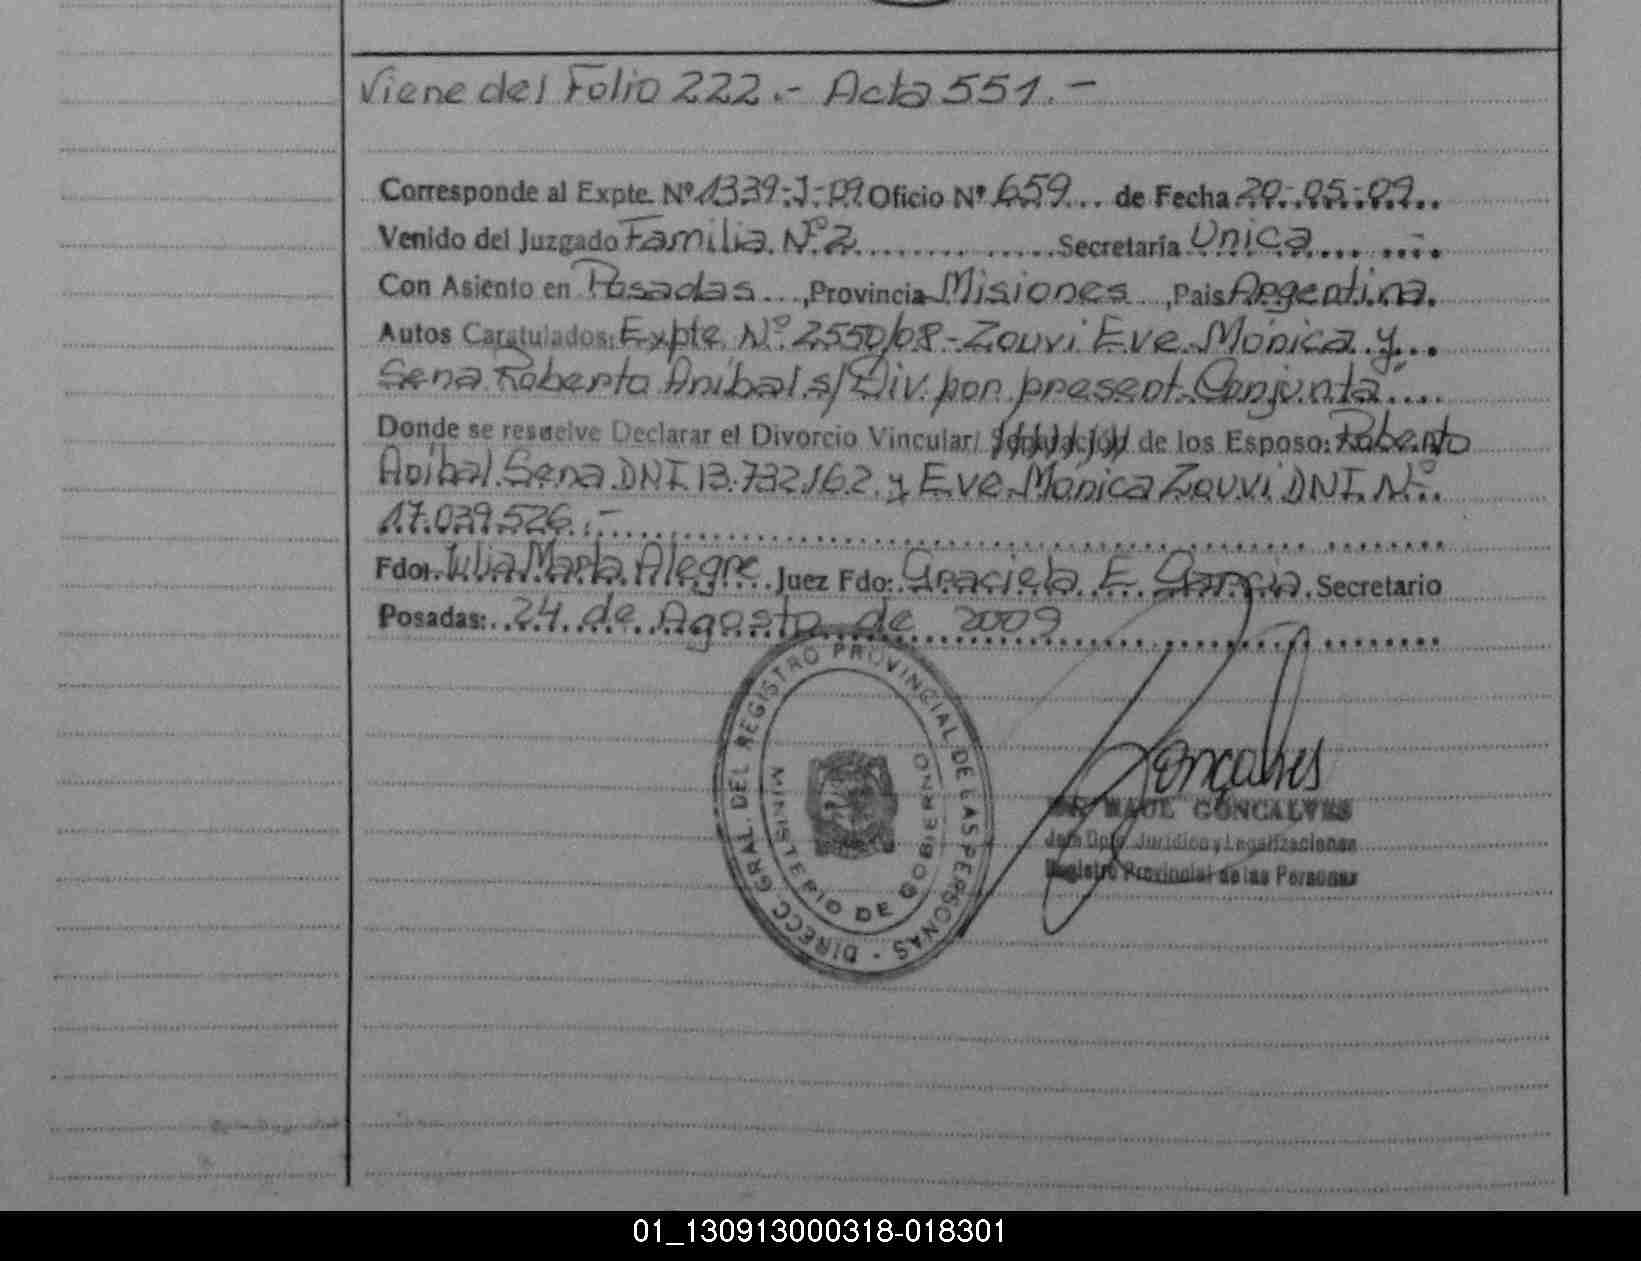 Viene del Folio 222.- Acta 551.-
Corresponde al Expte. Nº 1339-J-09 Oficio Nº 659... de Fecha 20-05-09..
Venido del Juzgado Familia Nº 2 .......... Secretaría Unica
Con Asiento en Posadas..., Provincia Misiones..., Pais Argentina.
Autos Caratulados: Expte. Nº 2550/08.- Zouvi Eve Mónica y...
Sena Roberto Anibal s/ Div. por present. Conjunta"....
Donde se resuelve Declarar el Divorcio Vincular/ Separación de los Esposo: Roberto
Anibal Sena DNI 13.732.162 y Eve Monica Zouvi DNI Nº.
17.039.526.-
Fdo: Julia Marta Alegre.. Juez Fdo: Graciela E. Garcia. Secretario
Posadas: 24 de Agosto de 2009
DIRECC. GRAL. DEL REGISTRO PROVINCIAL DE LAS PERSONAS -
MINISTERIO DE GOBIERNO
Gonçalves
RAUL GONCALVES
Jefe Dpto. Jurídico y Legalizaciones
Registro Provincial de las Personas
01_130913000318-018301